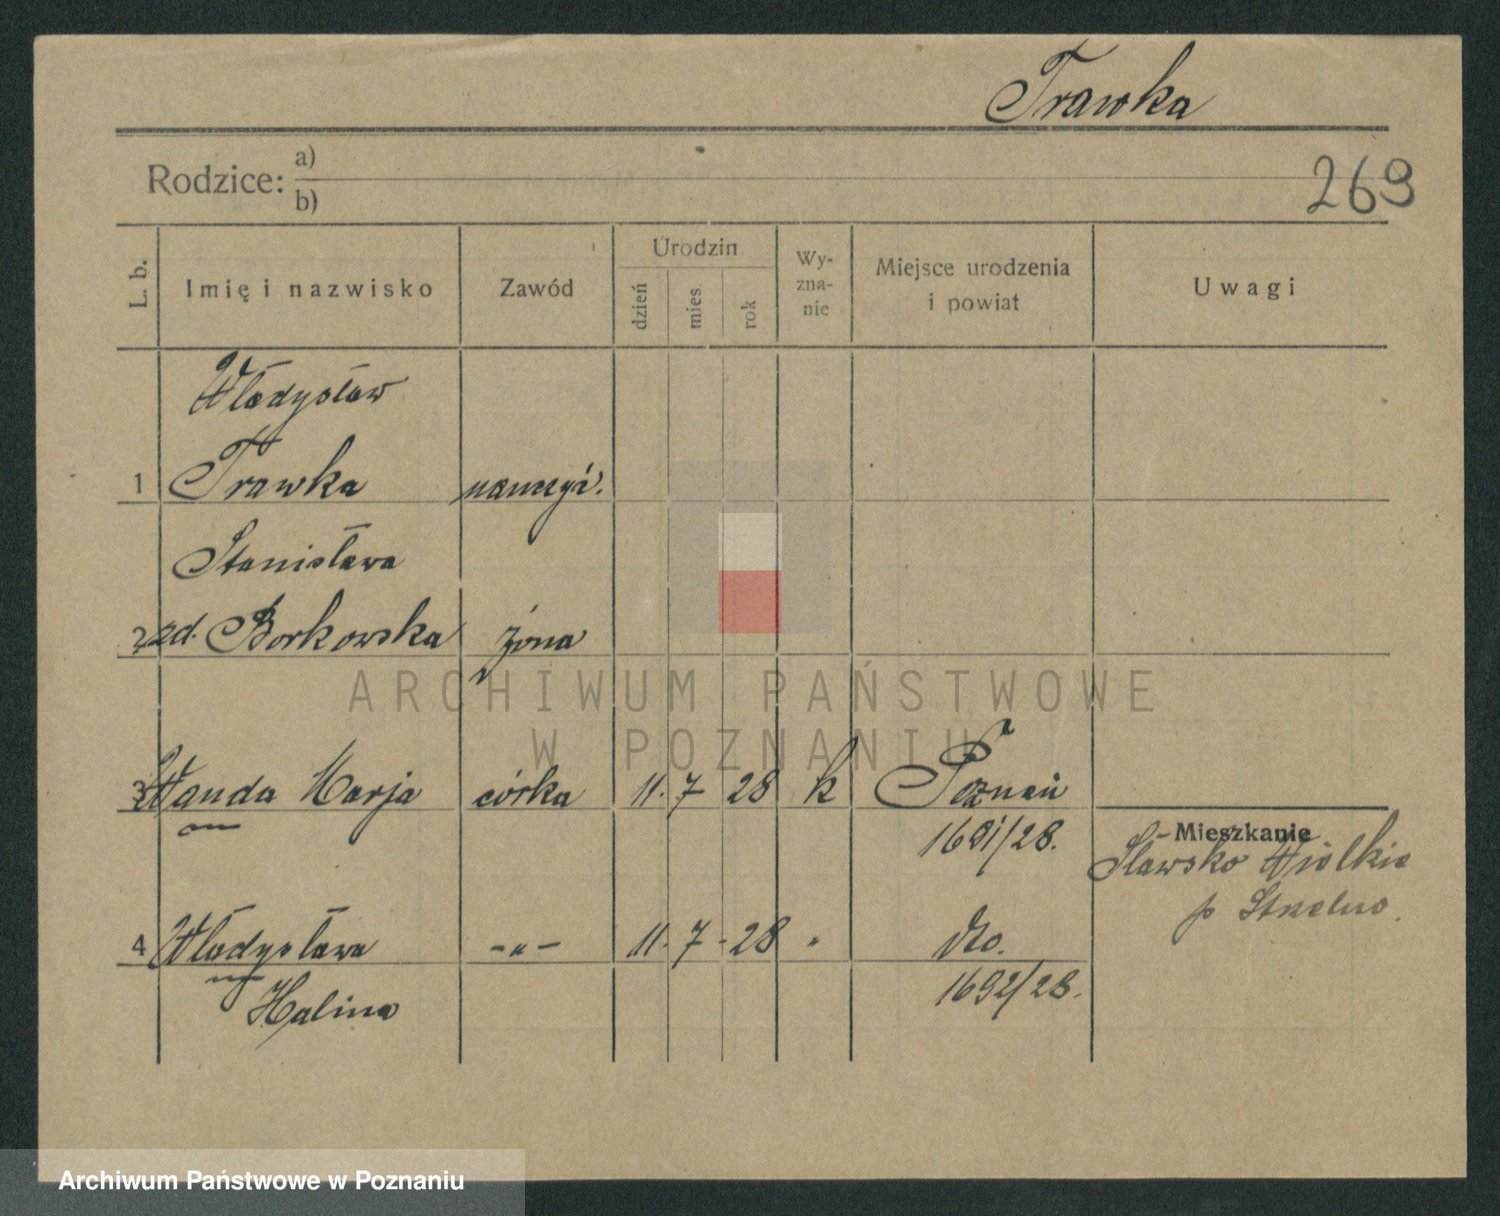 Trawka
Rodzice: a)
b)
269
L. b.
Imię i nazwisko
Zawód
Urodzin
dzień
mies
rok
Wy-
zna-
nie
Miejsce urodzenia
i powiat
Uwagi
Władysław
1 Trawka nauczyć.
Stanisława
2 zd. Borkowska żona
3 Wanda Marja córka 11. 7 28 k Poznań
1691/28.
Mieszkanie
Sławsko Wielkie
p Strzelno.
4 Władysława -„- 11. 7 - 28 " dto.
Halina
1692/28.
ARCHIWUM PAŃSTWOWE
W POZNANIU
Archiwum Państwowe w Poznaniu